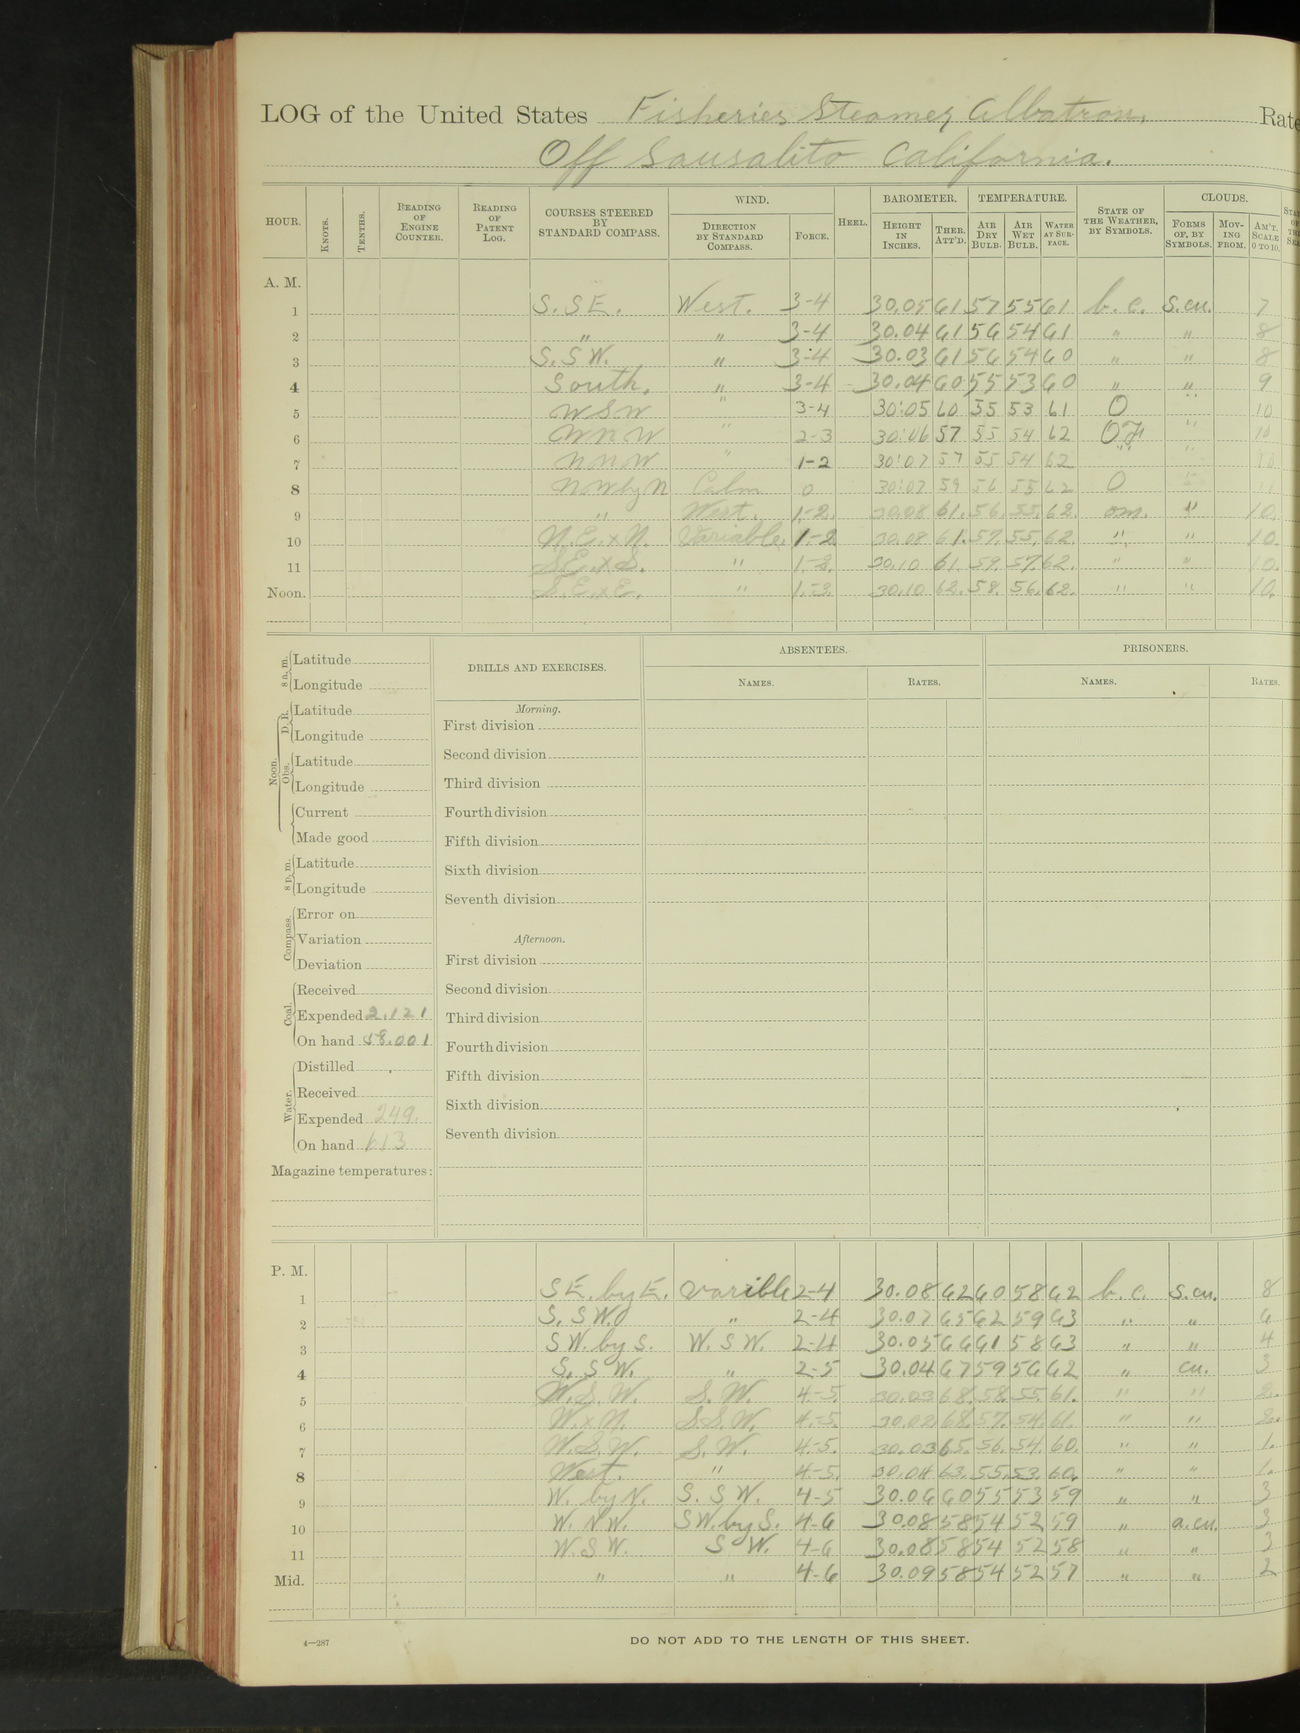 LOG of the United States Fisheries Steamer Albatross, Rate
Off Sausalito California.
HOUR. KNOTS. TENTHS. READING OF ENGINE COUNTER. READING OF PATENT LOG. COURSES STEERED BY STANDARD COMPASS. WIND. DIRECTION BY STANDARD COMPASS. FORCE. HEEL. BAROMETER. HEIGHT IN INCHES. THER. ATT'D. TEMPERATURE. AIR DRY BULB. AIR WET BULB. WATER AT SURFACE. STATE OF THE WEATHER, BY SYMBOLS. CLOUDS. FORMS OF, BY SYMBOLS. MOVING FROM. AM'T. SCALE 0 TO 10.
A. M.
1 S. SE. West. 3-4 30.05 61 57 55 61 b. c. S. cu. 7
2 " " 3-4 30.04 61 56 54 61 " " 8
3 S. SW. " 3-4 30.03 61 56 54 60 " " 8
4 South. " 3-4 30.04 60 55 53 60 " " 9
5 WSW " 3-4 30.05 60 55 53 61 O " 10
6 WNW " 2-3 30.06 57 55 54 62 OF " 10
7 NNW " 1-2 30.07 57 55 54 62 " " 10
8 NW by N Calm 0 30.07 59 56 55 62 O
9 " West. 1-2. 30.08 61. 56. 55. 62. om. " 10.
10 N.E. x N. Variable, 1-2 30.09 61. 57. 55. 62. " " 10.
11 SE. x S. " 1-2. 30.10 61. 59. 57. 62. " " 10.
Noon. S.E. x E. " 1-3. 30.10 62. 58. 56. 62. " " 10.
8 a. m. Latitude
Longitude
Noon. D. R. Latitude
Longitude
Obs. Latitude
Longitude
Current
Made good
8 p. m. Latitude
Longitude
Compass. Error on
Variation
Deviation
Coal. Received
Expended 2,121
On hand 58,001
Water. Distilled
Received
Expended 249.
On hand 613
Magazine temperatures:
DRILLS AND EXERCISES.
Morning.
First division
Second division
Third division
Fourth division
Fifth division
Sixth division
Seventh division
Afternoon.
First division
Second division
Third division
Fourth division
Fifth division
Sixth division
Seventh division
ABSENTEES.
NAMES. RATES.
PRISONERS.
NAMES. RATES.
P. M.
1 SE. by E. Varible 2-4 30.08 62 60 58 62 b. c. S. cu. 8
2 S. SW. " 2-4 30.07 65 62 59 63 " " 6
3 SW. by S. W. SW. 2-4 30.05 66 61 58 63 " " 4
4 S. SW. " 2-5 30.04 67 59 56 62 " cu. 3
5 W.S.W. S.W. 4-5. 30.03 68. 58. 55. 61. " " 2.
6 W. x N. S.S.W. 4-5. 30.02 68. 57. 54. 61. " " 2.
7 W.S.W. S.W. 4-5. 30.03 65. 56. 54. 60. " " 1.
8 West. " 4-5. 30.04 63. 55. 53. 60. " " 1.
9 W. by N. S. SW. 4-5 30.06 60 55 53 59 " " 3
10 W. NW. SW. by S. 4-6 30.08 58 54 52 59 " a. cu. 3
11 W. SW. SW. 4-6 30.08 58 54 52 58 " " 3
Mid. " " 4-6 30.09 58 54 52 57 " " 2
4—287 DO NOT ADD TO THE LENGTH OF THIS SHEET.